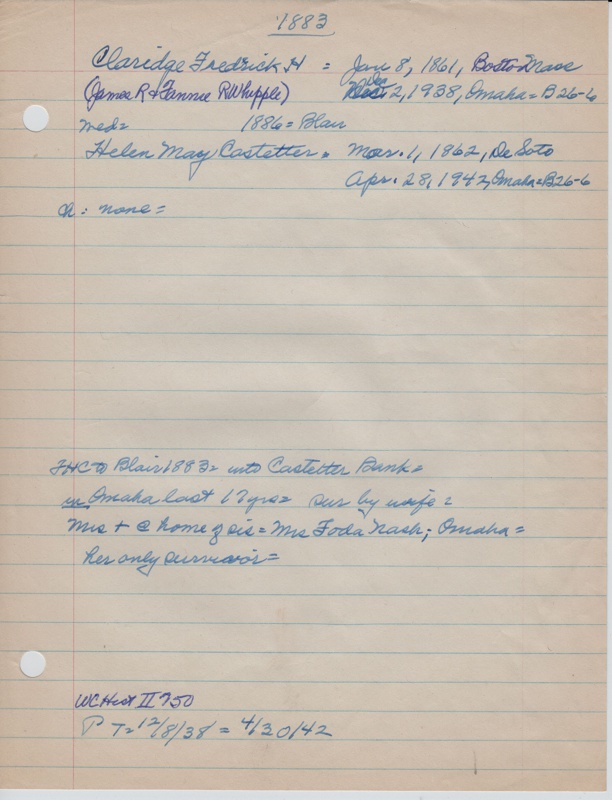 1883
Claridge Fredrick H = Jan 8, 1861, Boston Mass
(James R + Fannie R Whipple) Dec 2, 1938, Omaha = B26-6
med = 1886 = Blair
Helen May Castetter = Mar. 1, 1862, De Soto
Apr. 28, 1942, Omaha = B26-6
ch: none =
FHC to Blair 1883 = into Castetter Bank =
in Omaha last 17 yrs = sur by wife =
Mrs + @ home of sis = Mrs Foda Nash; Omaha =
her only survivor =
WC Hist II 750
P T = 12/8/38 = 4/30/42